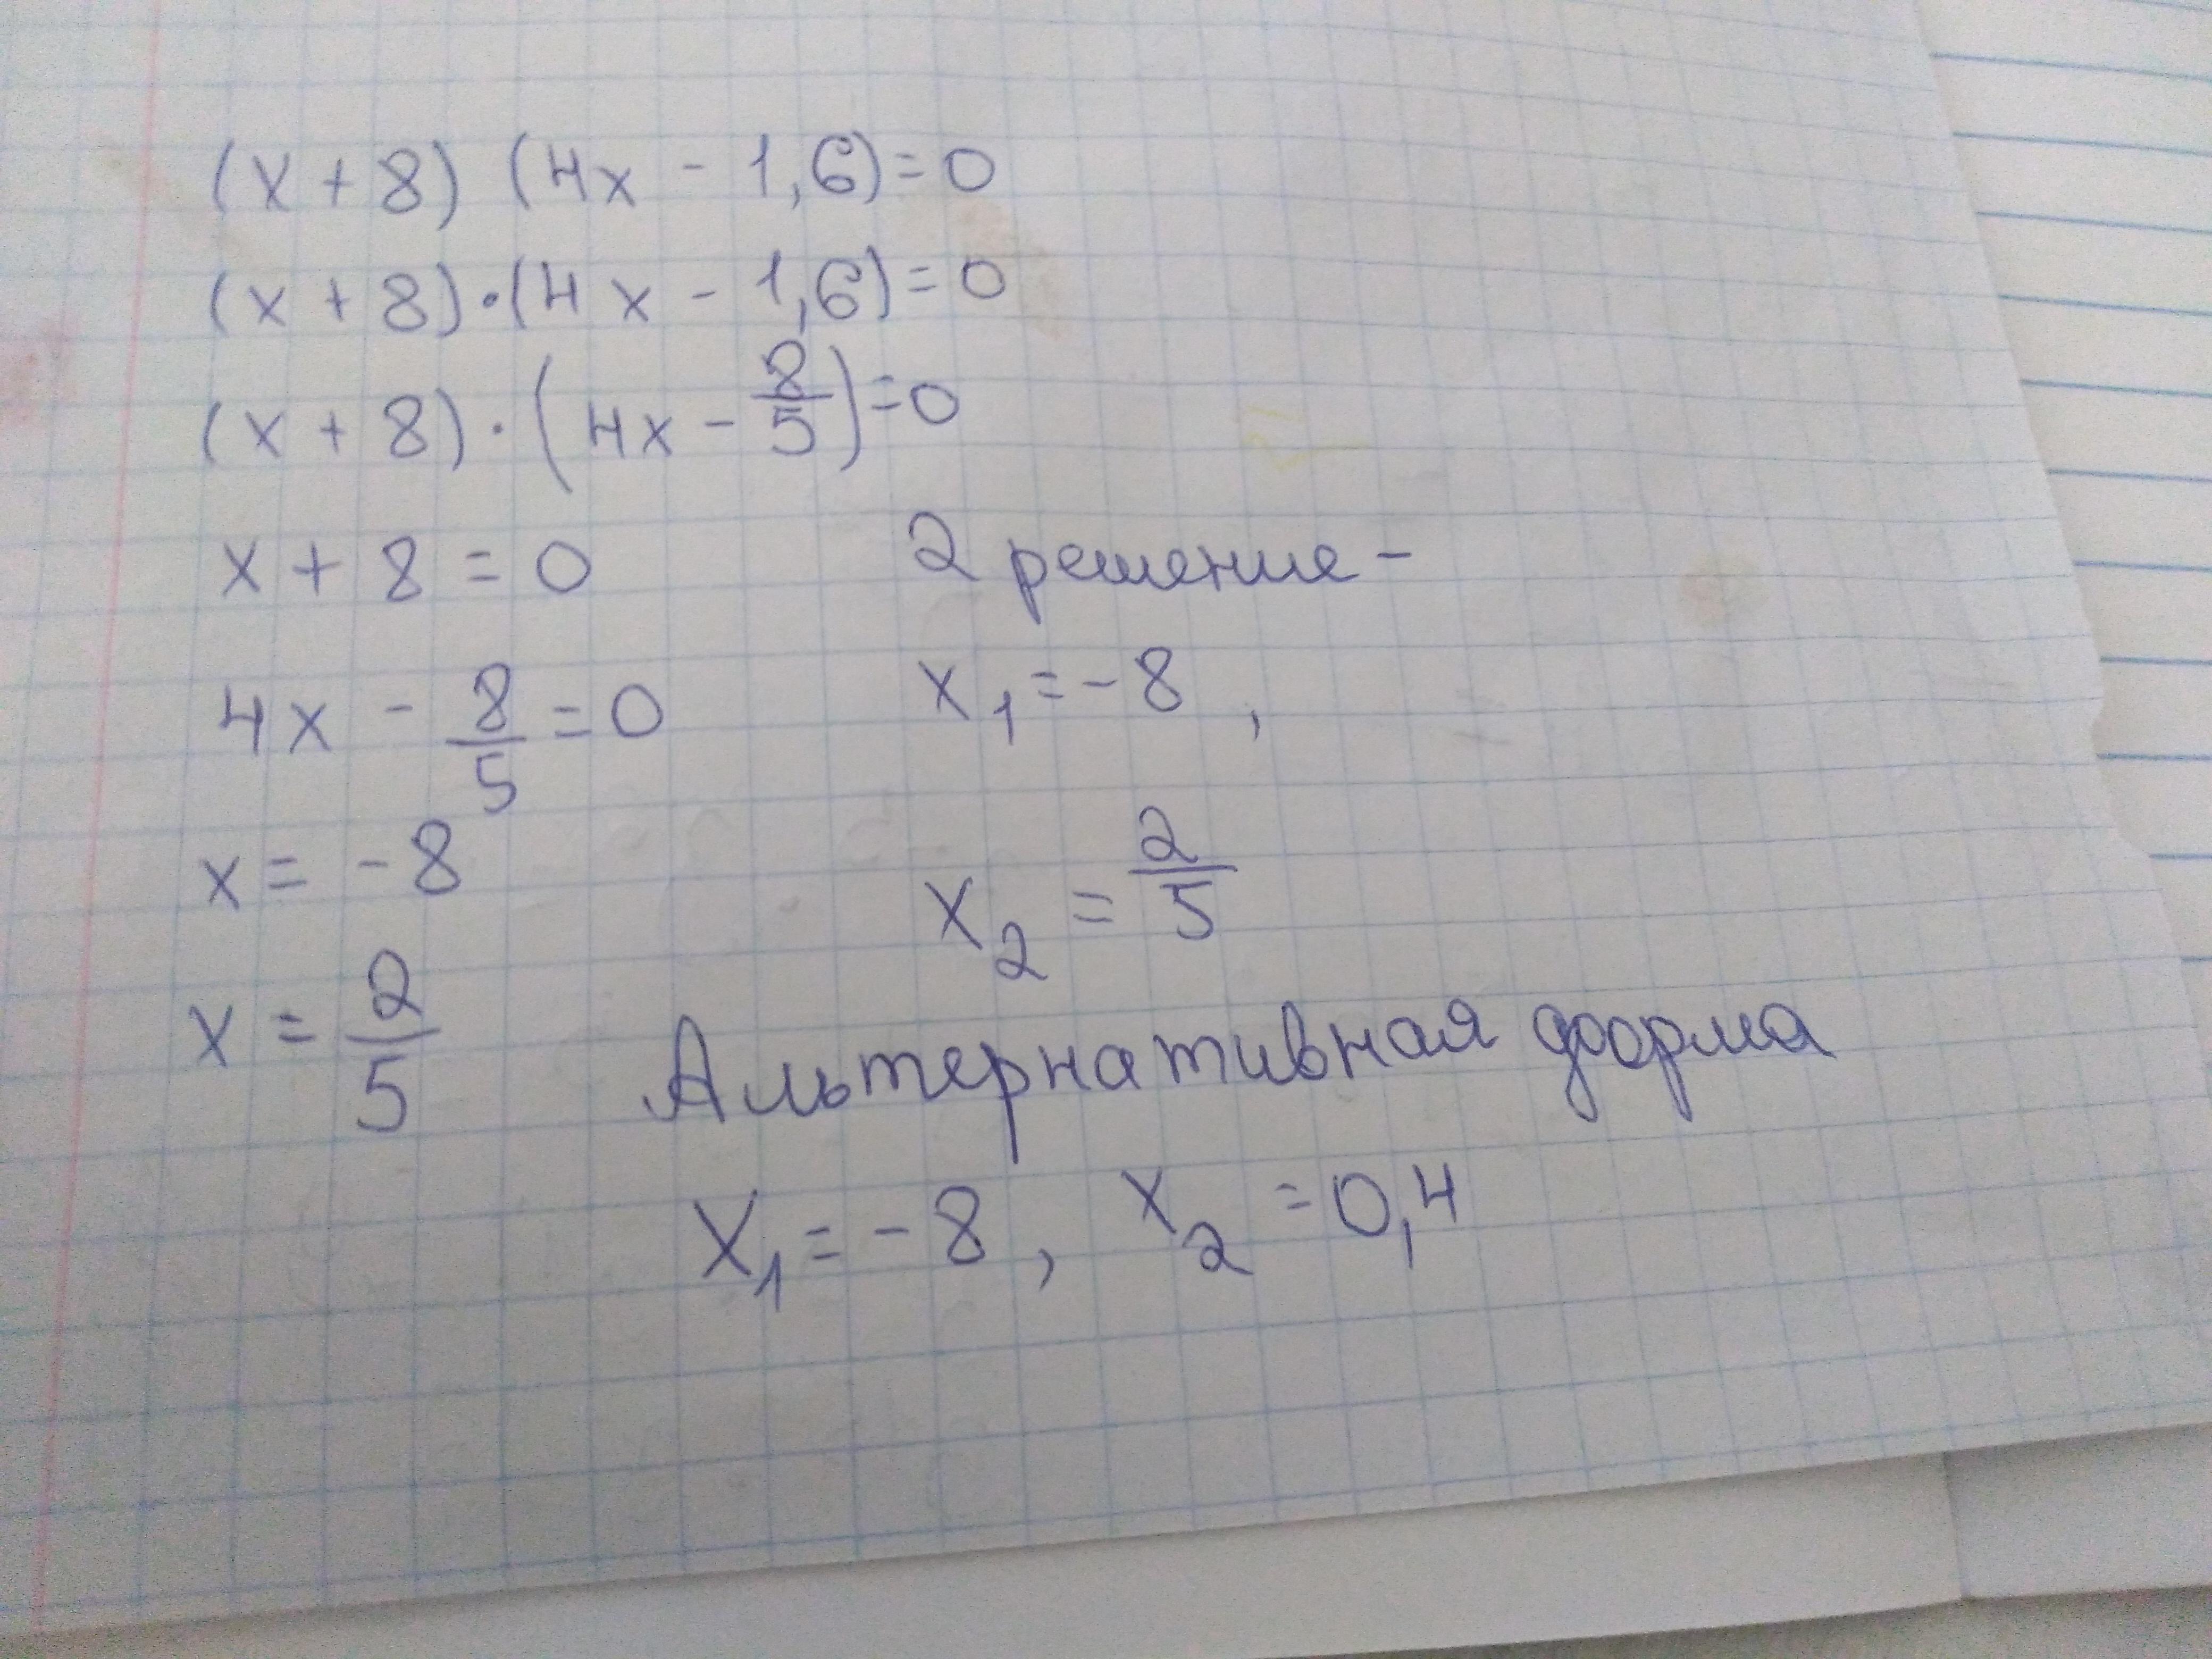 (x + 8) (4x - 1,6) = 0
(x + 8) · (4x - 1,6) = 0
(x + 8) · (4x - 8/5) = 0
x + 8 = 0
4x - 8/5 = 0
x = -8
x = 2/5
2 решение -
x₁ = -8 ,
x₂ = 2/5
Альтернативная форма
x₁ = -8 , x₂ = 0,4